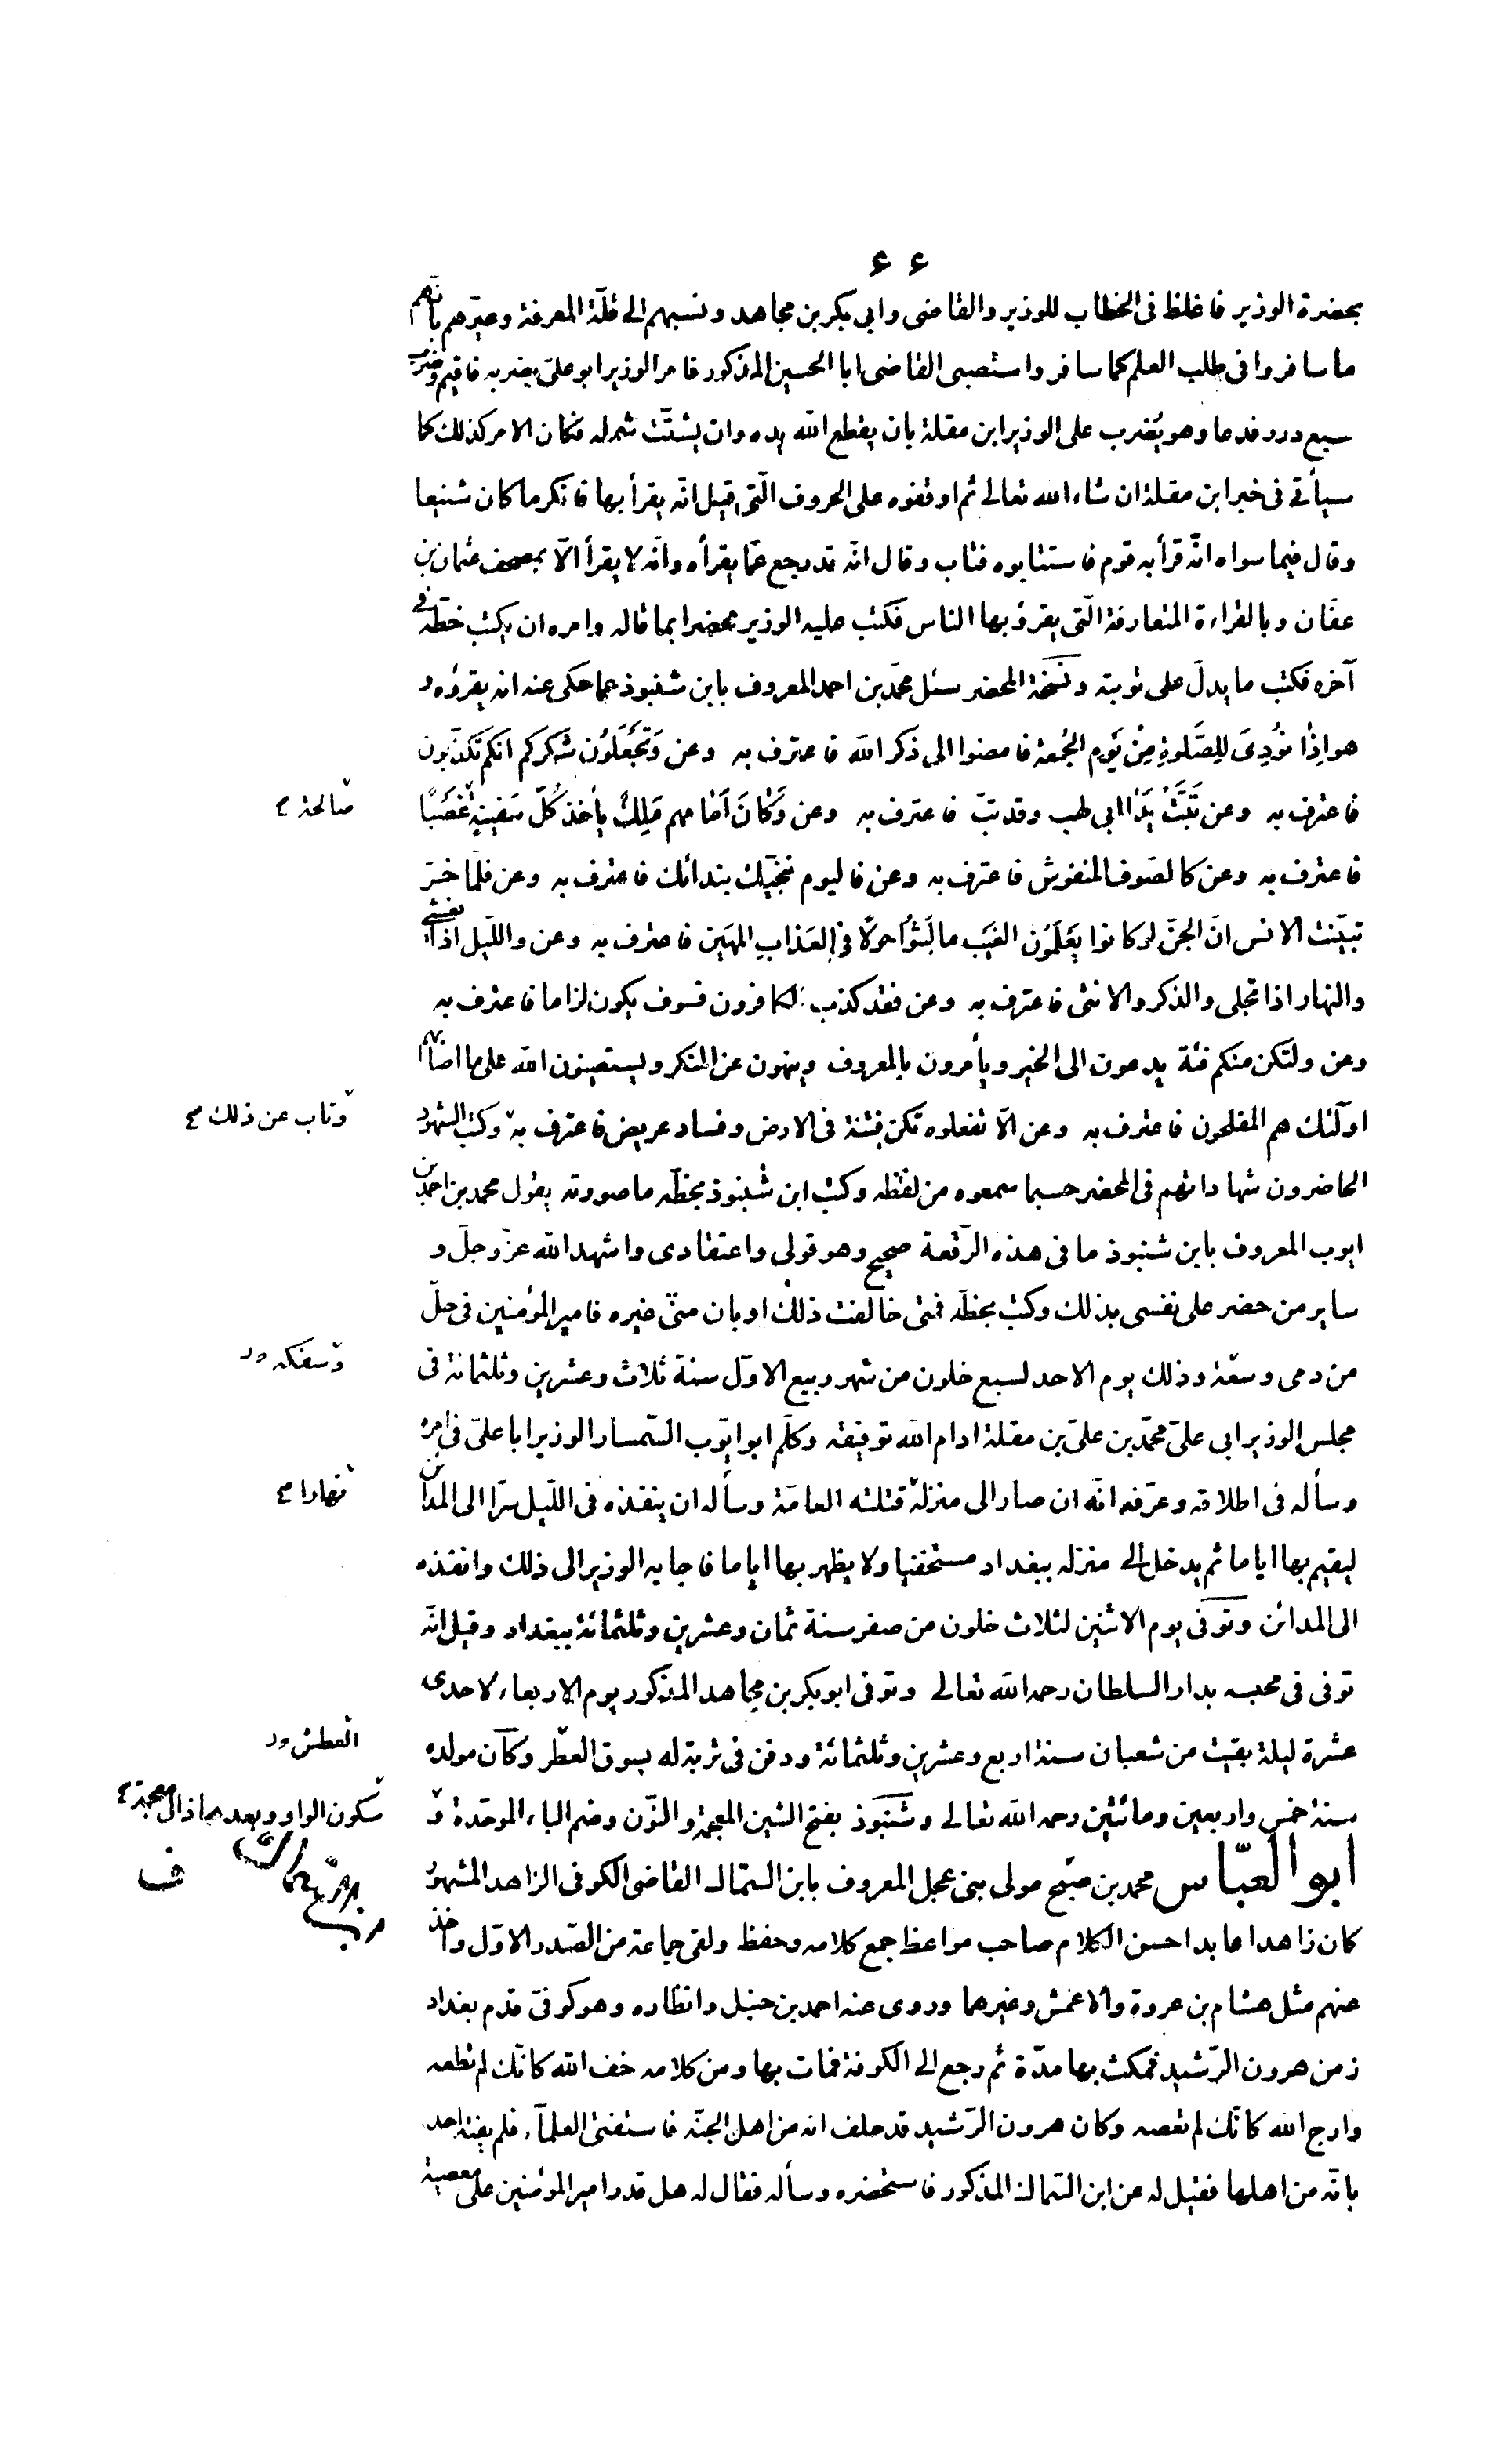 ۶۶
بحضرة الوزير فاغلظ فى الخطاب للوزير والقاضى وابى بكر بن مجاهد ونسبهم الى قلّة المعرفة وعيّرهم بانّهم
ما سافروا فى طلب العلم كما سافر واستصبى القاضى ابا الحسين المذكور فامر الوزير ابو علىّ بضربه فاقيم وضرب
سبع درر فدعا وهو يُضرب على الوزير ابن مقلة بان يقطع الله يده وان يشتّت شمله فكان الامر كذلك كما
سيأتى فى خبر ابن مقلة ان شاء الله تعالى ثم اوقفوه على الحروف الّتى قيل انّه يقرأ بها فانكر ما كان شنيعا
وقال فيما سواه انّه قرأ به قوم فاستتابوه فتاب وقال انّه قد رجع عمّا يقرأه وانّه لا يقرأ الّا بمصحف عثمان بن
عفّان وبالقراءة المتعارفة الّتى يقرؤ بها الناس فكتب عليه الوزير محضرا بما قاله وامره ان يكتب خطّه فى
آخره فكتب ما يدلّ على توبته ونسخة المحضر سئل محمّد بن احمد المعروف بابن شنبوذ عما حكى عنه انه يقرؤه و
هو اِذا نُودِىَ لِلصَّلوةِ مِنْ يَوم الجُمعة فامضوا الى ذكر الله فاعترف به وعن وَتَجعَلُون شكركم انكم تُكذّبون
فاعترف به وعن تَبَّتْ يَدَا ابى لهب وقد تبّ فاعترف به وعن وَكَانَ اَمَامهم مَلِكٌ يأخذ كُلّ سَفينةٍ غَصْبًا
صالحة
فاعترف به وعن كالصّوف المنفوش فاعترف به وعن فاليوم ننجّيك بندائك فاعترف به وعن فلمّا خرّ
تبيّنت الانس انّ الجنّ لو كانوا يَعلَمُون الغَيب ما لَبثُوا حولًا فى العَذابِ المهَين فاعترف به وعن واللّيل اذا يغشى
والنهار اذا تجلى والذكر والانثى فاعترف به وعن فقد كذب الكافرون فسوف يكون لزاما فاعترف به
وعن ولتكن منكم فئة يدعون الى الخير ويأمرون بالمعروف وينهون عن المنكر ويستعينون الله على ما اصابهم
اولٓئك هم المفلحون فاعترف به وعن الّا تفعلوه تكن فتنة فى الارض وفساد عريض فاعترف به وكتب الشهود
وتاب عن ذلك
الحاضرون شهاداتهم فى المحضر حسبما سمعوه من لفظه وكتب ابن شنبوذ بخطّه ما صورته يقول محمد بن احمد بن
ايوب المعروف بابن شنبوذ ما فى هذه الرّقعة صحيح وهو قولى واعتقادى واشهد الله عزّ وجلّ و
ساير من حضر على نفسى بذلك وكتب بخطّه فمتى خالفت ذلك او بان منّى غيره فامير المؤمنين فى حلّ
من دمى وسعة وذلك يوم الاحد لسبع خلون من شهر ربيع الاوّل سنة ثلاث وعشرين وثلثمائة فى
مجلس الوزير ابى علىّ محمّد بن علىّ بن مقلة ادام الله توفيقه وكلّم ابو ايّوب السّمسار الوزير ابا علىّ فى امره
وسأله فى اطلاقه وعرّفه انّه ان صار الى منزله قتلته العامّة وسأله ان ينفذه فى اللّيل سرّا الى المدائن
ليقيم بها اياما ثم يدخل الى منزله ببغداد مستخفيا ولا يظهر بها اياما فاجابه الوزير الى ذلك وانفذه
الى المدائن وتوفى يوم الاثنين لثلاث خلون من صفر سنة ثمان وعشرين وثلثمائة ببغداد وقيل انّه
توفى فى محبسه بدار السلطان رحمه الله تعالى وتوفى ابو بكر بن مجاهد المذكور يوم الاربعاء لاحدى
عشرة ليلة بقيت من شعبان سنة اربع وعشرين وثلثمائة ودفن فى تربة له بسوق العطر وكان مولده
العطش
سنة خمس واربعين ومائتين رحمه الله تعالى وشَنَبُوذ بفتح الشين المعجمة والنّون وضم الباء الموحّدة و
سكون الواو وبعدها ذال معجمة
ابو العبّاس محمد بن صبيح مولى بنى عجل المعروف بابن السّماك القاضى الكوفى الزاهد المشهور
ف
كان زاهدا عابدا حسن الكلام صاحب مواعظ جمع كلامه وحفظ ولقى جماعة من الصّدر الاوّل واخذ
عنهم مثل هشام بن عروة والاعمش وغيرهما وروى عنه احمد بن حنبل وانظاره وهو كوفىّ قدم بغداد
زمن هرون الرّشيد فمكث بها مدّة ثم رجع الى الكوفة فمات بها ومن كلامه خف الله كانّك لم تطعه
وارج الله كانّك لم تعصه وكان هرون الرّشيد قد حلف انه من اهل الجنّة فاستفتى العلمآء فلم يفته احد
بانّه من اهلها فقيل له عن ابن السّماك المذكور فاستحضره وسأله فقال له هل قدر امير المؤمنين على معصية